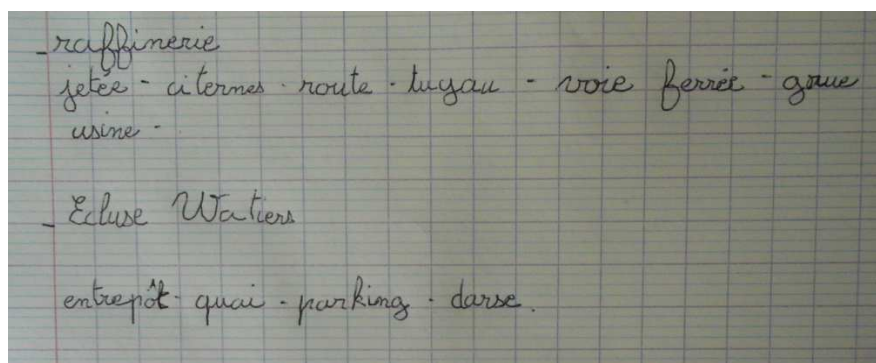 - raffinerie
jetée - citernes - route - tuyau - voie ferrée - grue
usine -
- Ecluse Watiers
entrepôt - quai - parking - darse.